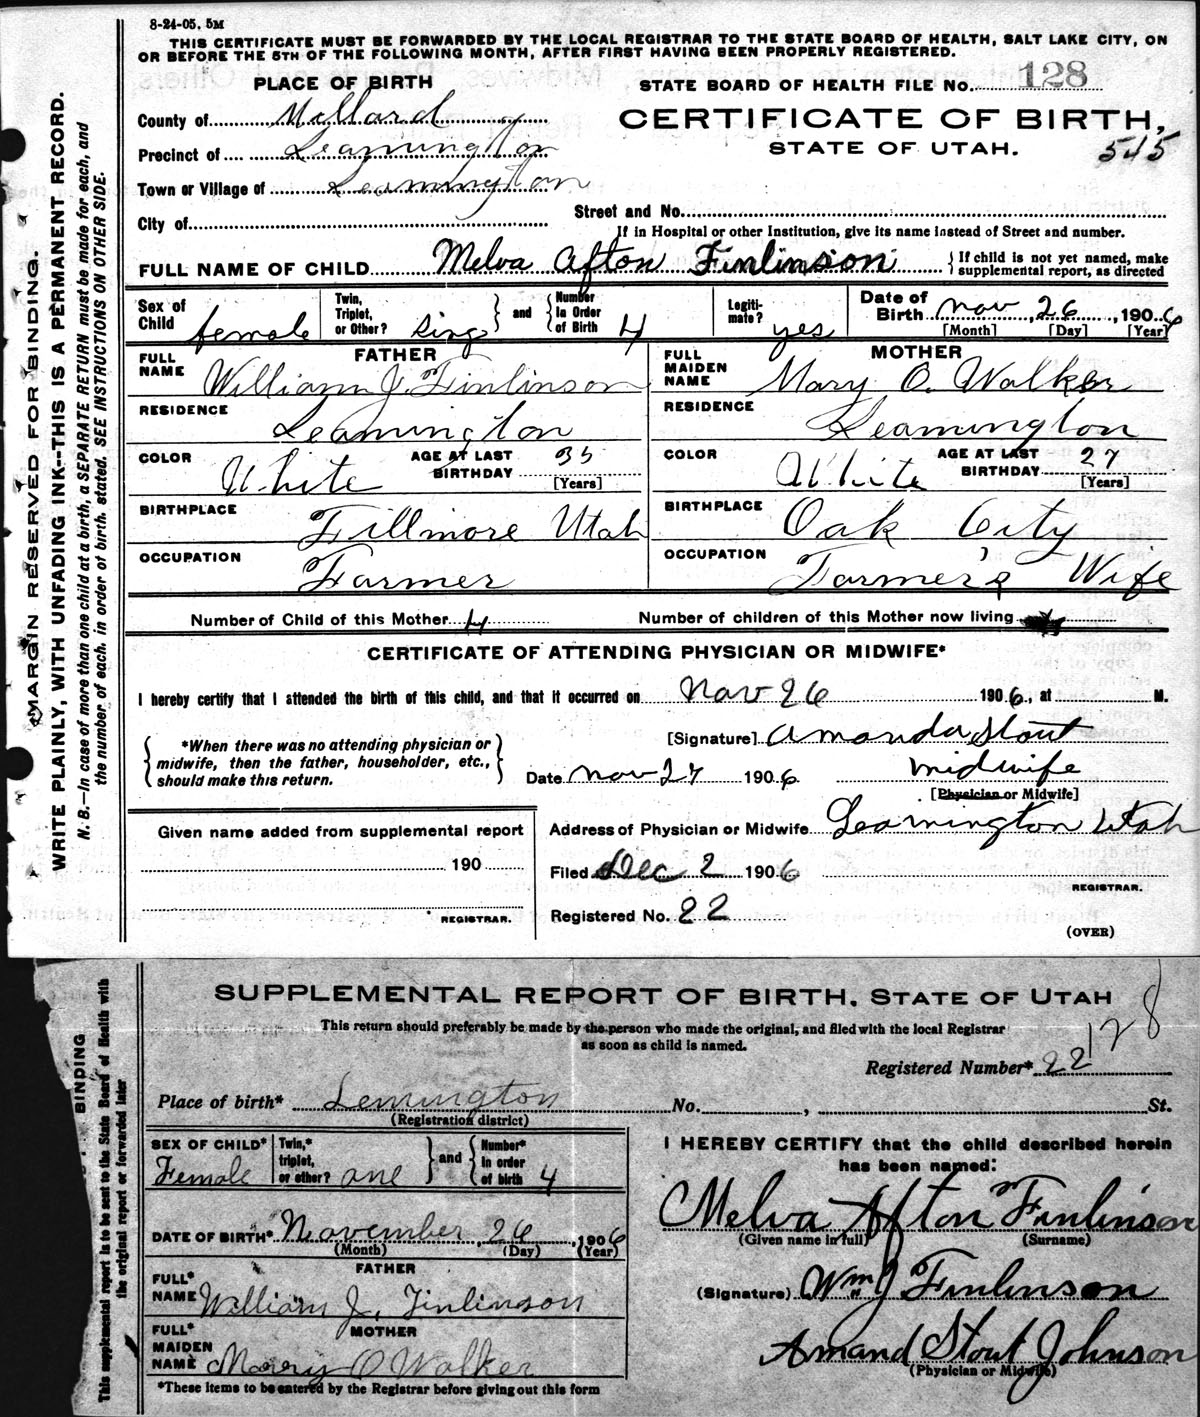 8-24-05. 5M
THIS CERTIFICATE MUST BE FORWARDED BY THE LOCAL REGISTRAR TO THE STATE BOARD OF HEALTH, SALT LAKE CITY, ON
OR BEFORE THE 5TH OF THE FOLLOWING MONTH, AFTER FIRST HAVING BEEN PROPERLY REGISTERED.
MARGIN RESERVED FOR BINDING.
WRITE PLAINLY, WITH UNFADING INK--THIS IS A PERMANENT RECORD.
N. B.—In case of more than one child at a birth, a SEPARATE RETURN must be made for each, and
the number of each, in order of birth, stated. SEE INSTRUCTIONS ON OTHER SIDE.
PLACE OF BIRTH
STATE BOARD OF HEALTH FILE No. 128
County of Millard
CERTIFICATE OF BIRTH,
Precinct of Leamington
STATE OF UTAH.
545
Town or Village of Leamington
City of
Street and No.
If in Hospital or other Institution, give its name instead of Street and number.
FULL NAME OF CHILD Melva Afton Finlinson { If child is not yet named, make
supplemental report, as directed
Sex of Child female
Twin, Triplet, or Other? Sing and Number In Order of Birth 4
Legitimate? yes
Date of Birth Nov 26, 1906
[Month] [Day] [Year]
FATHER
FULL NAME William J. Finlinson
RESIDENCE Leamington
COLOR White AGE AT LAST BIRTHDAY 35
[Years]
BIRTHPLACE Fillmore Utah
OCCUPATION Farmer
MOTHER
FULL MAIDEN NAME Mary O. Walker
RESIDENCE Leamington
COLOR White AGE AT LAST BIRTHDAY 27
[Years]
BIRTHPLACE Oak City
OCCUPATION Farmer's Wife
Number of Child of this Mother 4 Number of children of this Mother now living
CERTIFICATE OF ATTENDING PHYSICIAN OR MIDWIFE*
I hereby certify that I attended the birth of this child, and that it occurred on Nov 26 1906, at M.
*When there was no attending physician or
midwife, then the father, householder, etc.,
should make this return.
[Signature] Amanda Stout
Date Nov 27 1906 midwife
[Physician or Midwife]
Given name added from supplemental report
190
REGISTRAR.
Address of Physician or Midwife Leamington Utah
Filed Dec 2 1906
REGISTRAR.
Registered No. 22
(OVER)
SUPPLEMENTAL REPORT OF BIRTH. STATE OF UTAH
This return should preferably be made by the person who made the original, and filed with the local Registrar
as soon as child is named.
128
Registered Number* 22
BINDING
This supplemental report is to be sent to the State Board of Health with
the original report or forwarded later
Place of birth* Lemington No. , St.
(Registration district)
SEX OF CHILD* Female
Twin,* triplet, or other? one and Number* in order of birth 4
DATE OF BIRTH* November 26, 1906
(Month) (Day) (Year)
FATHER
FULL* NAME William J. Finlinson
MOTHER
FULL* MAIDEN NAME Mary O Walker
*These items to be entered by the Registrar before giving out this form
I HEREBY CERTIFY that the child described herein
has been named:
Melva Afton Finlinson
(Given name in full) (Surname)
(Signature) Wm J Finlinson
Amand Stout Johnson
(Physician or Midwife)